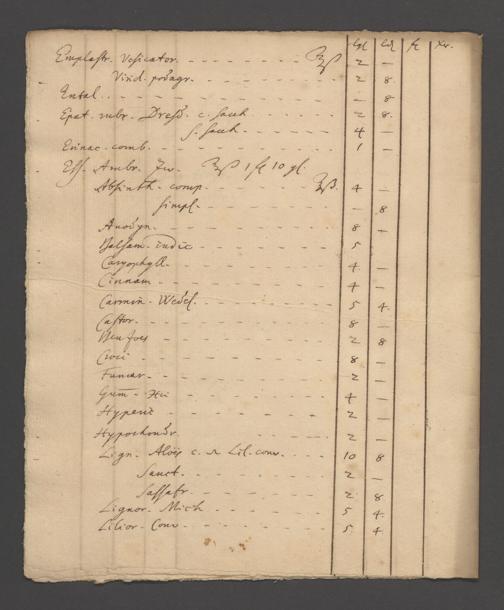 gl ch fl xr.
Emplastr. Vesicator. - - - - - ℥ß 2 —
Virid. pdagr. - - - - - 2 8
Ental. - - - - - — 8
Epat. rubr. Dresd. c. Sacch. 2 8
S. Sacch. - - - 4 —
Erinac. comb. - - - - - 1 —
Ess. Ambr. ℥ß 1 fl 10 gl.
Absinth. comp. - - - ℥ß. 4 —
simpl. - - - - — 8
Anodyn. - - - - 8 —
Balsam. indic - - - - 5
Caryophyll. - - - - 4 —
Cinnam. - - - - 4 —
Carmin. Wedel. - - - - 5 4.
Castor. - - - - 8 —
Benzoes - - - - 2 8
Croci - - - - 8 —
Fumar. - - - - 2 —
Gum. - - - - 4 —
Hyperic - - - - 2 —
Hypochondr. - - - - 2 —
Lign. Aloës c. Lil. conv. - - - 10 8
Sanct. - - - - 2 —
Sassafr. - - - - 2 8
Lignor. Mich - - - - 5 4.
Lilior. Conv. - - - - 5 4